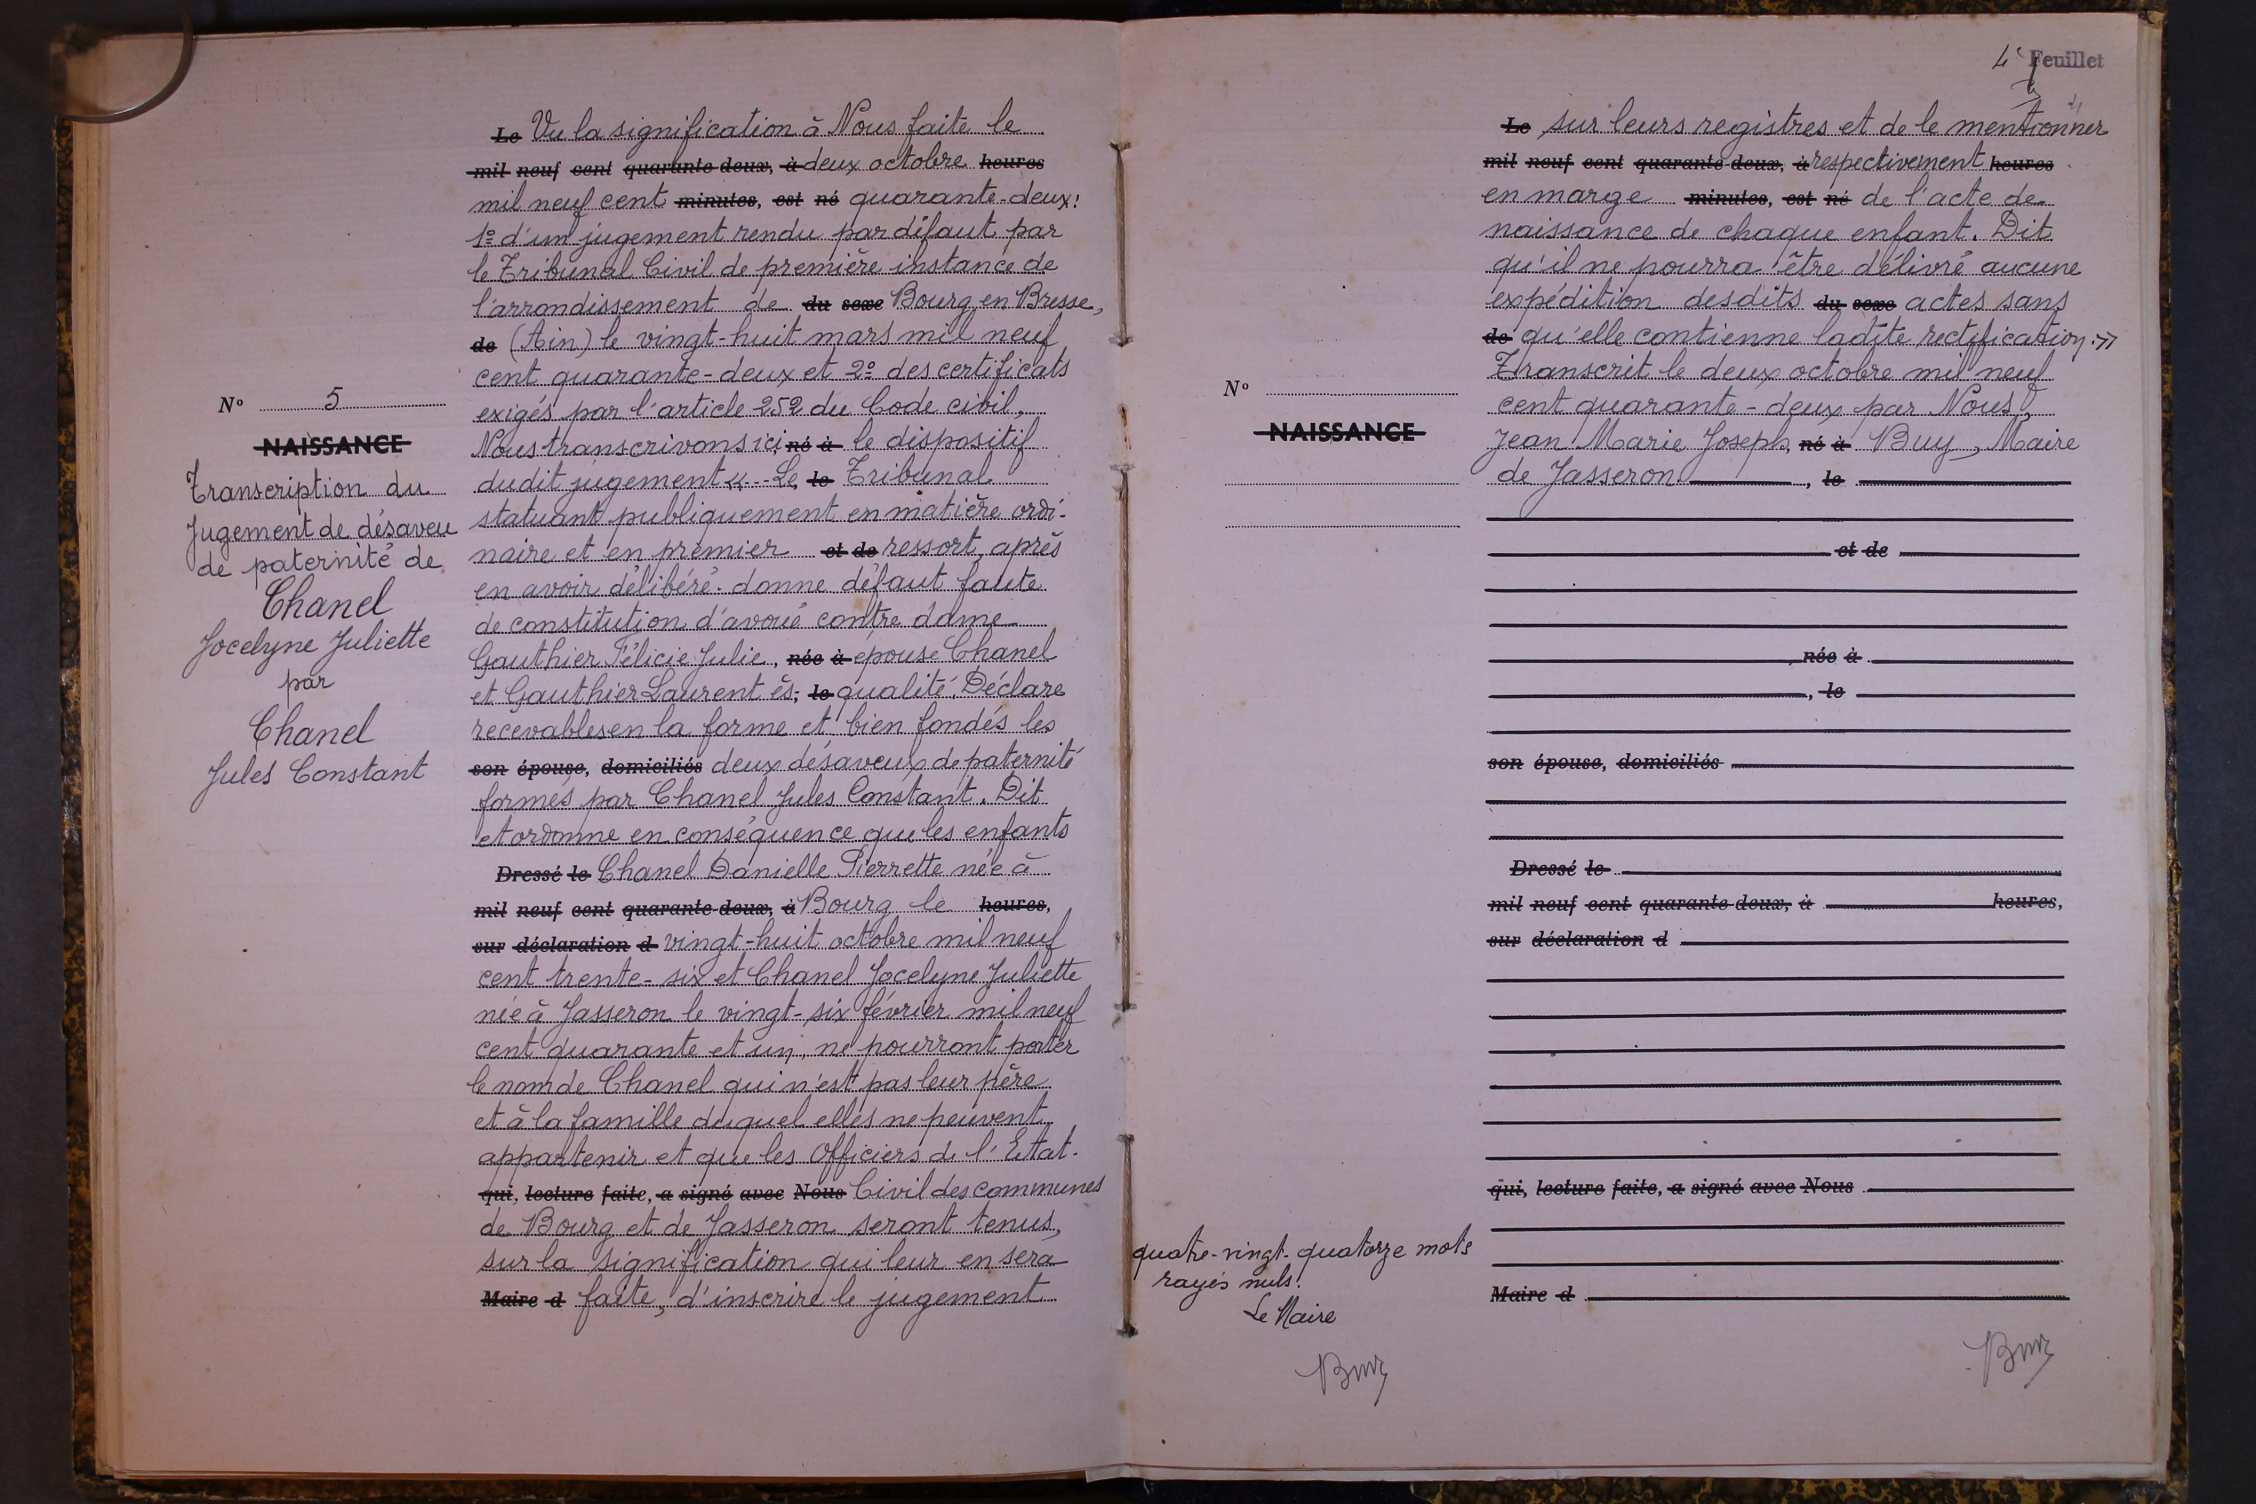 N° 5
NAISSANCE
Transcription du
Jugement de désaveu
de paternité de
Chanel
Jocelyne Juliette
par
Chanel
Jules Constant
Le Vu la signification à Nous faite le
mil neuf cent quarante-deux, à deux octobre heures
mil neuf cent minutes, est né quarante-deux:
1° d'un jugement rendu par défaut par
le Tribunal Civil de première instance de
l'arrondissement de du sexe Bourg en Bresse,
de (Ain) le vingt-huit mars mil neuf
cent quarante-deux et 2° des certificats
exigés par l'article 252 du Code civil,
Nous transcrivons ici né à le dispositif
dudit jugement «--- Le, le Tribunal
statuant publiquement en matière ordi-
naire et en premier et de ressort, après
en avoir délibéré. donne défaut faute
de constitution d'avoué contre dame
Gauthier Félicie Julie, née à épouse Chanel
et Gauthier Laurent ès, le qualité. Déclare
recevables en la forme et bien fondés les
son épouse, domiciliés deux désaveux de paternité
formés par Chanel Jules Constant. Dit
et ordonne en conséquence que les enfants
Dressé le Chanel Danielle Pierrette née à
mil neuf cent quarante-deux, à Bourg le heures,
sur déclaration d vingt-huit octobre mil neuf
cent trente-six et Chanel Jocelyne Juliette
née à Jasseron le vingt-six février mil neuf
cent quarante et un, ne pourront porter
le nom de Chanel qui n'est pas leur père
et à la famille duquel elles ne peuvent
appartenir et que les Officiers de l'Etat-
qui, lecture faite, a signé avec Nous Civil des communes
de Bourg et de Jasseron seront tenus,
sur la signification qui leur en sera
Maire d faite, d'inscrire le jugement
4e Feuillet
N°
NAISSANCE
Le sur leurs registres et de le mentionner
mil neuf cent quarante-deux, à respectivement heures
en marge minutes, est né de l'acte de
naissance de chaque enfant. Dit
qu'il ne pourra être délivré aucune
expédition desdits du sexe actes sans
de qu'elle contienne ladite rectification.»
Transcrit le deux octobre mil neuf
cent quarante-deux par Nous,
Jean Marie Joseph, né à Buy, Maire
de Jasseron , le
et de
née à
, le
son épouse, domiciliés
Dressé le
mil neuf cent quarante-deux, à heures,
sur déclaration d
qui, lecture faite, a signé avec Nous
Maire d
quatre-vingt-quatorze mots
rayés nuls.
Le Maire
Buy
Buy